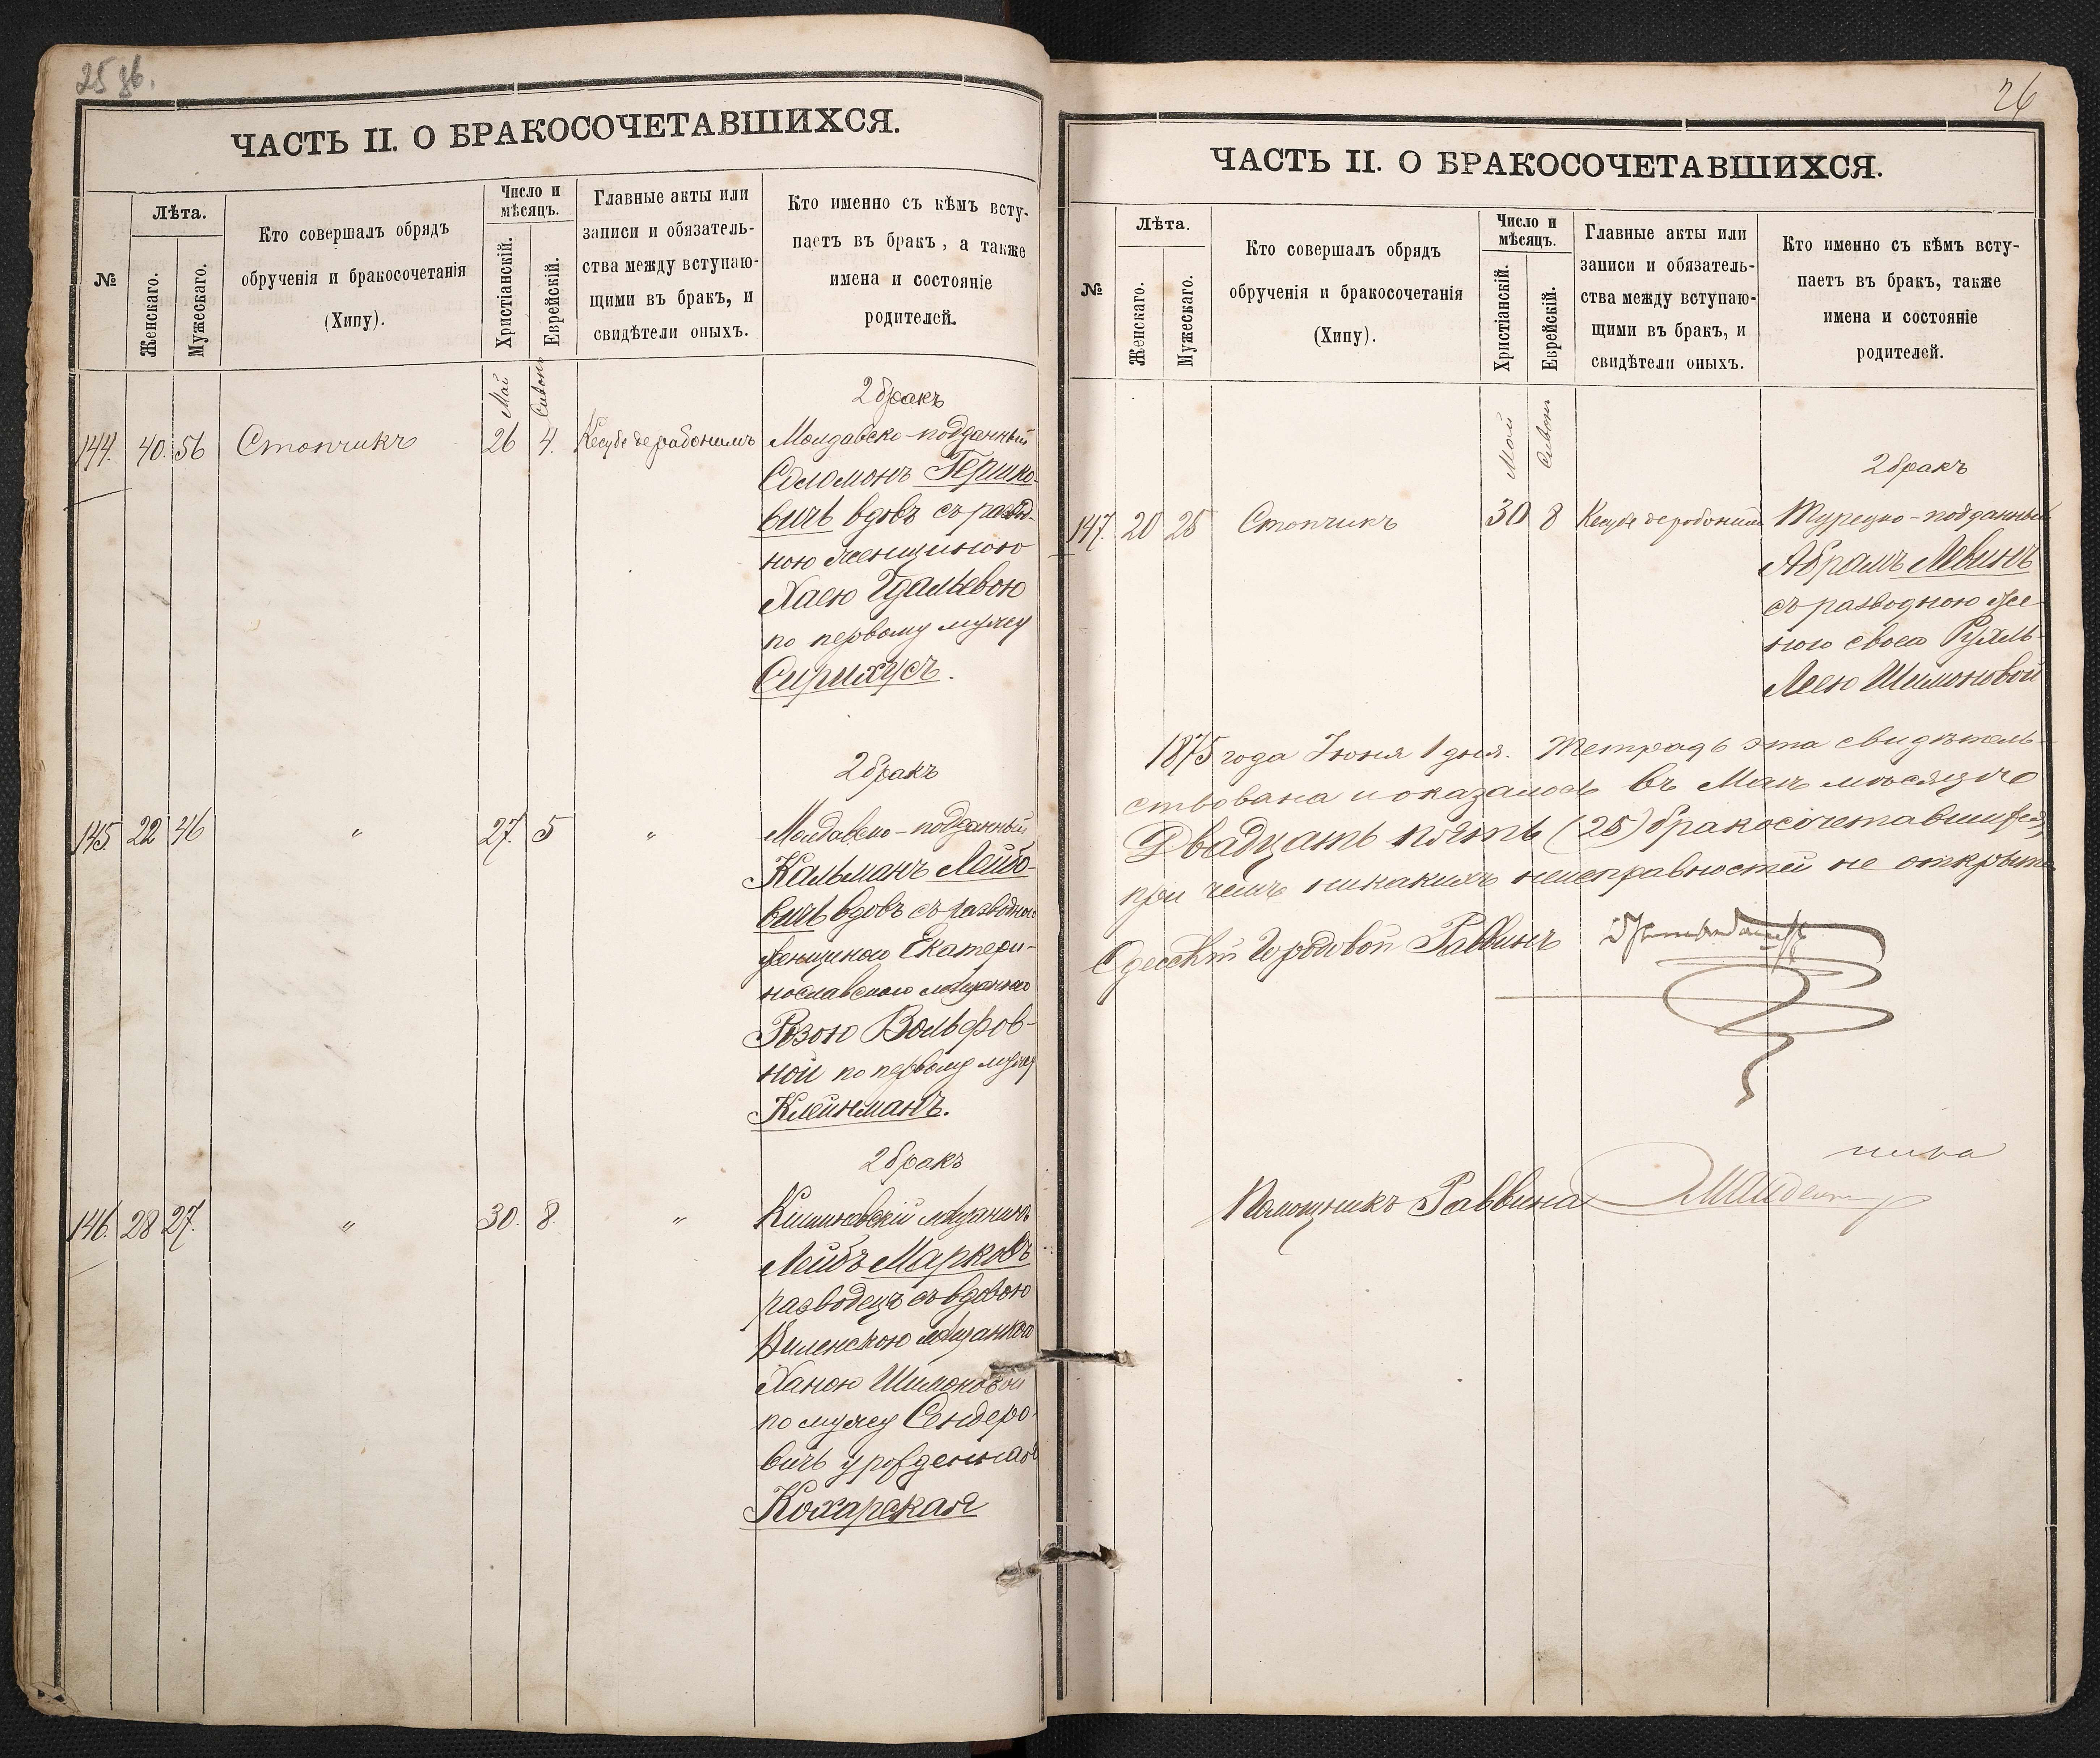 25 зв.
ЧАСТЬ II. О БРАКОСОЧЕТАВШИХСЯ.
№
Лѣта.
Женскаго.
Мужескаго.
Кто совершалъ обрядъ
обрученія и бракосочетанія
(Хипу).
Число и
мѣсяцъ.
Христіанскій.
Еврейскій.
Главные акты или
записи и обязатель-
ства между вступаю-
щими въ бракъ, и
свидѣтели оныхъ.
Кто именно съ кѣмъ всту-
паетъ въ бракъ, а также
имена и состояніе
родителей.
Май
Сивонъ
2 бракъ
144. 40. 56 Стопчикъ 26 4. Кесубе дерабонимъ Молдавско-подданный
Соломонъ Гершко-
вичъ вдовъ съ развод-
ною женщиною
Хаею Гдальевою
по первому мужу
Сирихусъ.
2 бракъ
145 22 46 " 27. 5 " Молдавско-подданный
Кальманъ Лейбо-
вичъ вдовъ съ разводною
женщиною Екатери-
нославскою мѣщанкою
Розою Вольфов-
ной по первому мужу
Клейнманъ.
2 бракъ
146. 28 27. " 30. 8. " Кишиневскій мѣщанинъ
Лейбъ Марковъ
разводецъ съ вдовою
Виленскою мѣщанкою
Ханою Шимоновой
по мужу Сендеро-
вичъ урожденная
Кохарская
26
ЧАСТЬ II. О БРАКОСОЧЕТАВШИХСЯ.
№
Лѣта.
Женскаго.
Мужескаго.
Кто совершалъ обрядъ
обрученія и бракосочетанія
(Хипу).
Число и
мѣсяцъ.
Христіанскій.
Еврейскій.
Главные акты или
записи и обязатель-
ства между вступаю-
щими въ бракъ, и
свидѣтели оныхъ.
Кто именно съ кѣмъ всту-
паетъ въ бракъ, также
имена и состояніе
родителей.
Май
Сивонъ
2 бракъ
147. 20 25 Стопчикъ 30 8 Кесубе дерабонимъ Турецко-подданный
Абрамъ Левинъ
съ разводною же-
ною своею Рухль-
Леею Шимоновой
1875 года Іюня 1 дня. Тетрадь эта свидѣтель-
ствована и оказалось въ Маѣ мѣсяцѣ
Двадцать пять (25) бракосочетавшихся,
при чемъ никакихъ неисправностей не открыто
Одесскій Городовой Раввинъ
Помощникъ Раввина